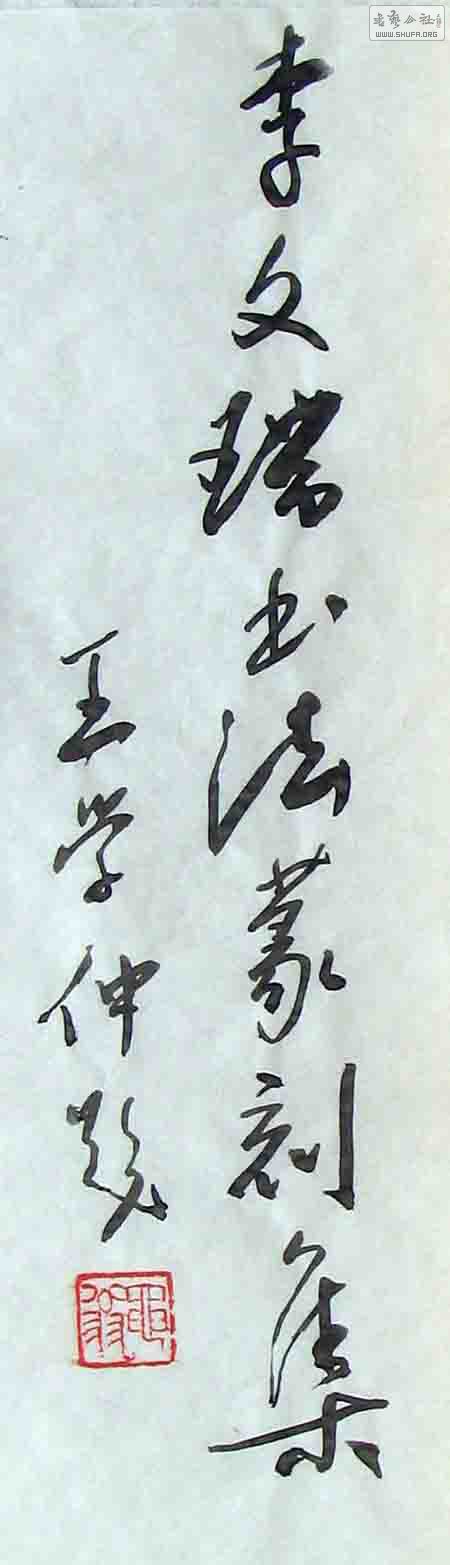 李文瑞书法篆刻集
王学仲题
书艺公社
WWW.SHUFA.ORG